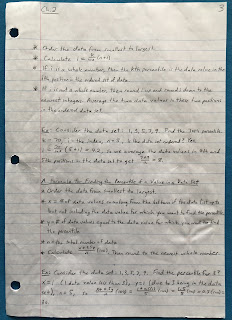 Ch.2 3
* Order the data from smallest to largest.
* Calculate i = k/100 (n+1)
* If i is a whole number, then the kth percentile is the data value in the
ith position in the ordered set of data.
* If i is not a whole number, then round i up and round i down to the
nearest integers. Average the two data values in these two positions
in the ordered set.
Ex: Consider the data set: 1, 3, 5, 7, 9. Find the 70th percentile.
k = 70, i = the index, n = 5, is the data set ordered? Yes.
i = 70/100 (5+1) = 4.2, so we average the data values in 4th and
5th positions in the data set to get 7+9/2 = 8
A Formula for Finding the Percentile of a Value in a Data Set
* Order the data from smallest to largest.
* x = # of data values counting from the bottom of the data list up to
but not including the data value for which you want to find the percentile.
* y = # of data values equal to the data value for which you want to find
the percentile
* n = the total number of data.
* Calculate x+0.5y/n (100). Then round to the nearest whole number.
Ex: Consider the data set: 1, 3, 5, 7, 9. Find the percentile for
x = 1, y = 1